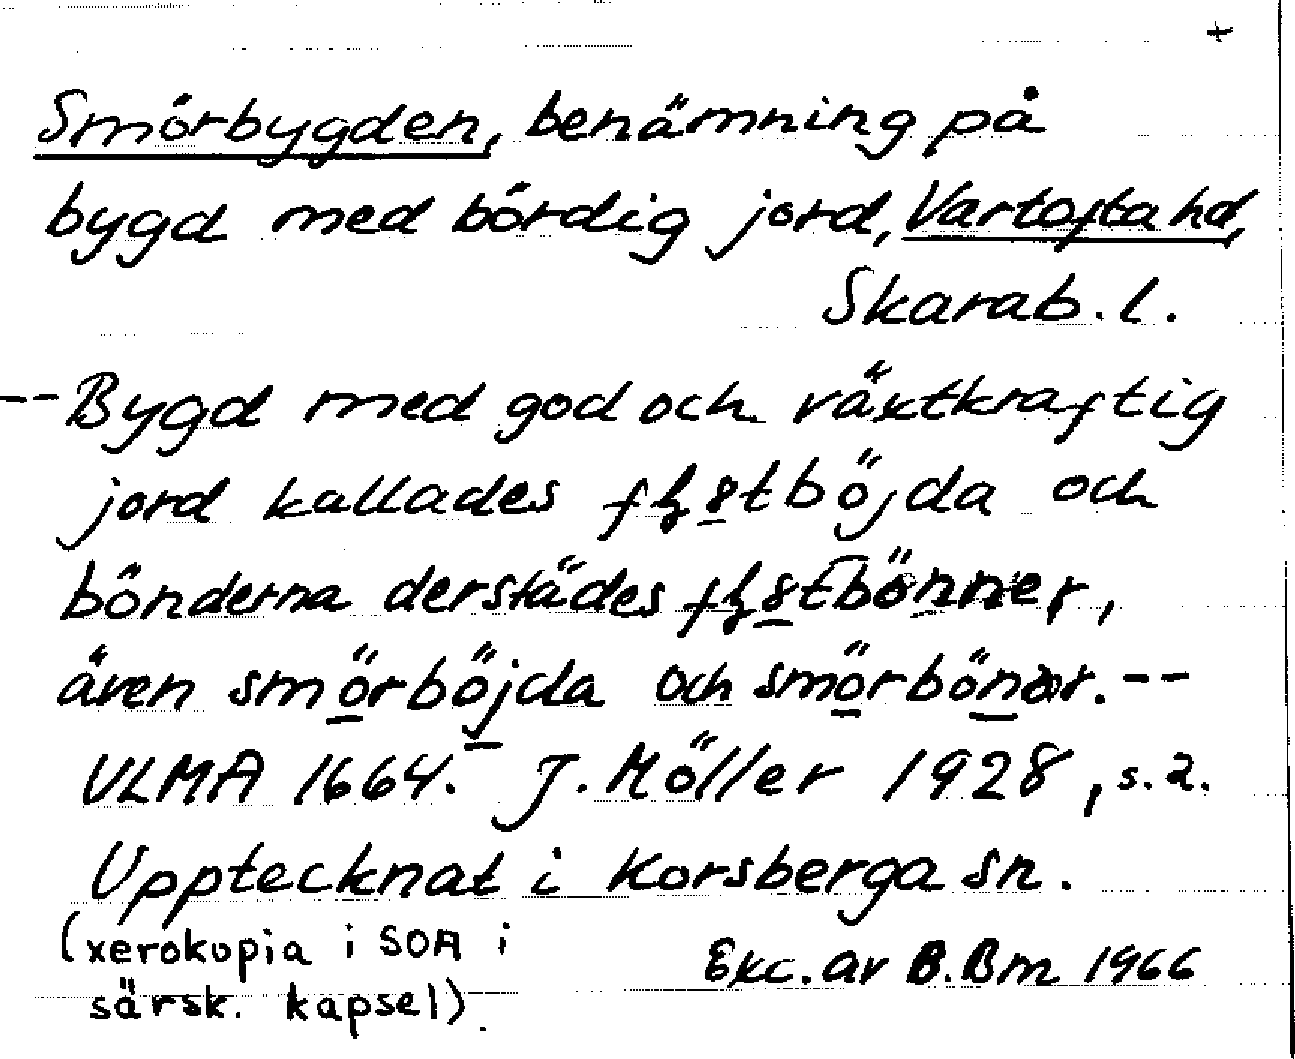 +
Smörbygden, benämning på
bygd med bördig jord, Vartofta hd,
Skarab. l.
-- Bygd med god och växtkraftig
jord kallades och
bönderna derstädes
även smörböjda och smörbönar. --
ULMA 1664. J. Möller 1928, s. 2.
Upptecknat i Korsberga sn.
(xerokopia i SOA i
särsk. kapsel).
Exc. av B. Bm 1966